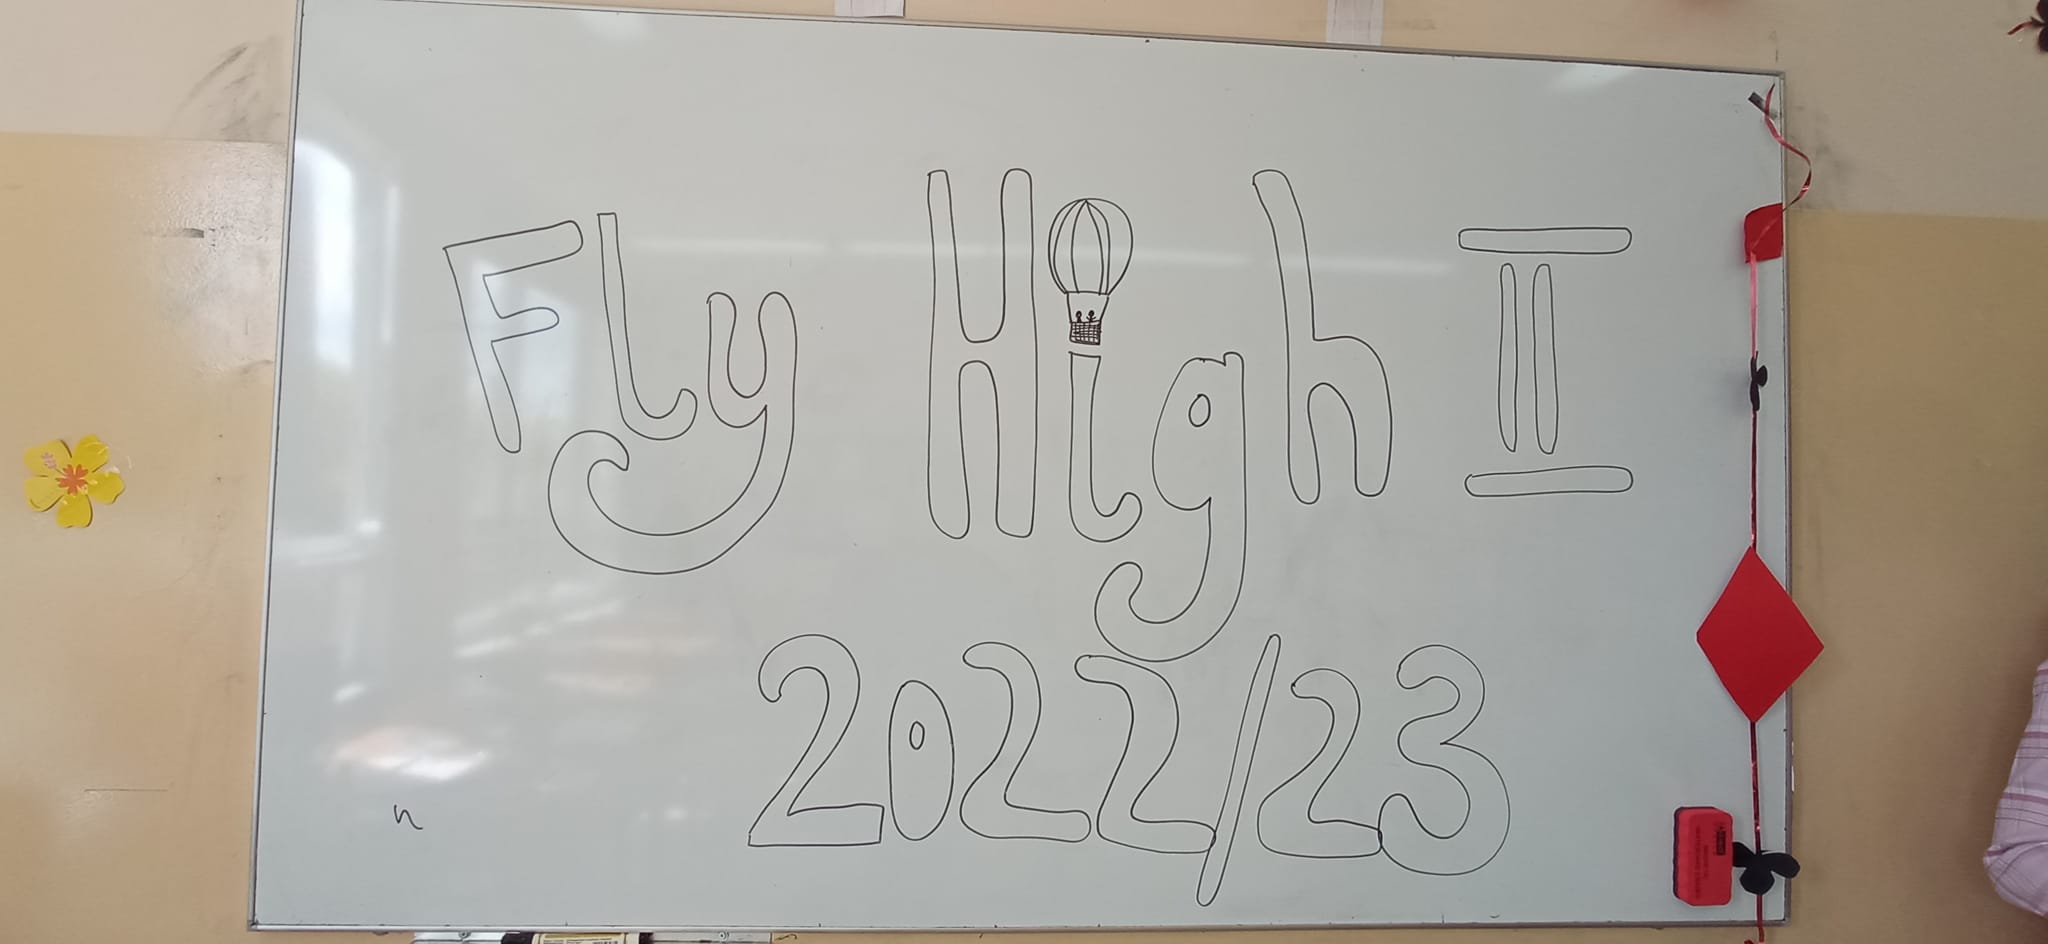 Fly High II
2022/23
n